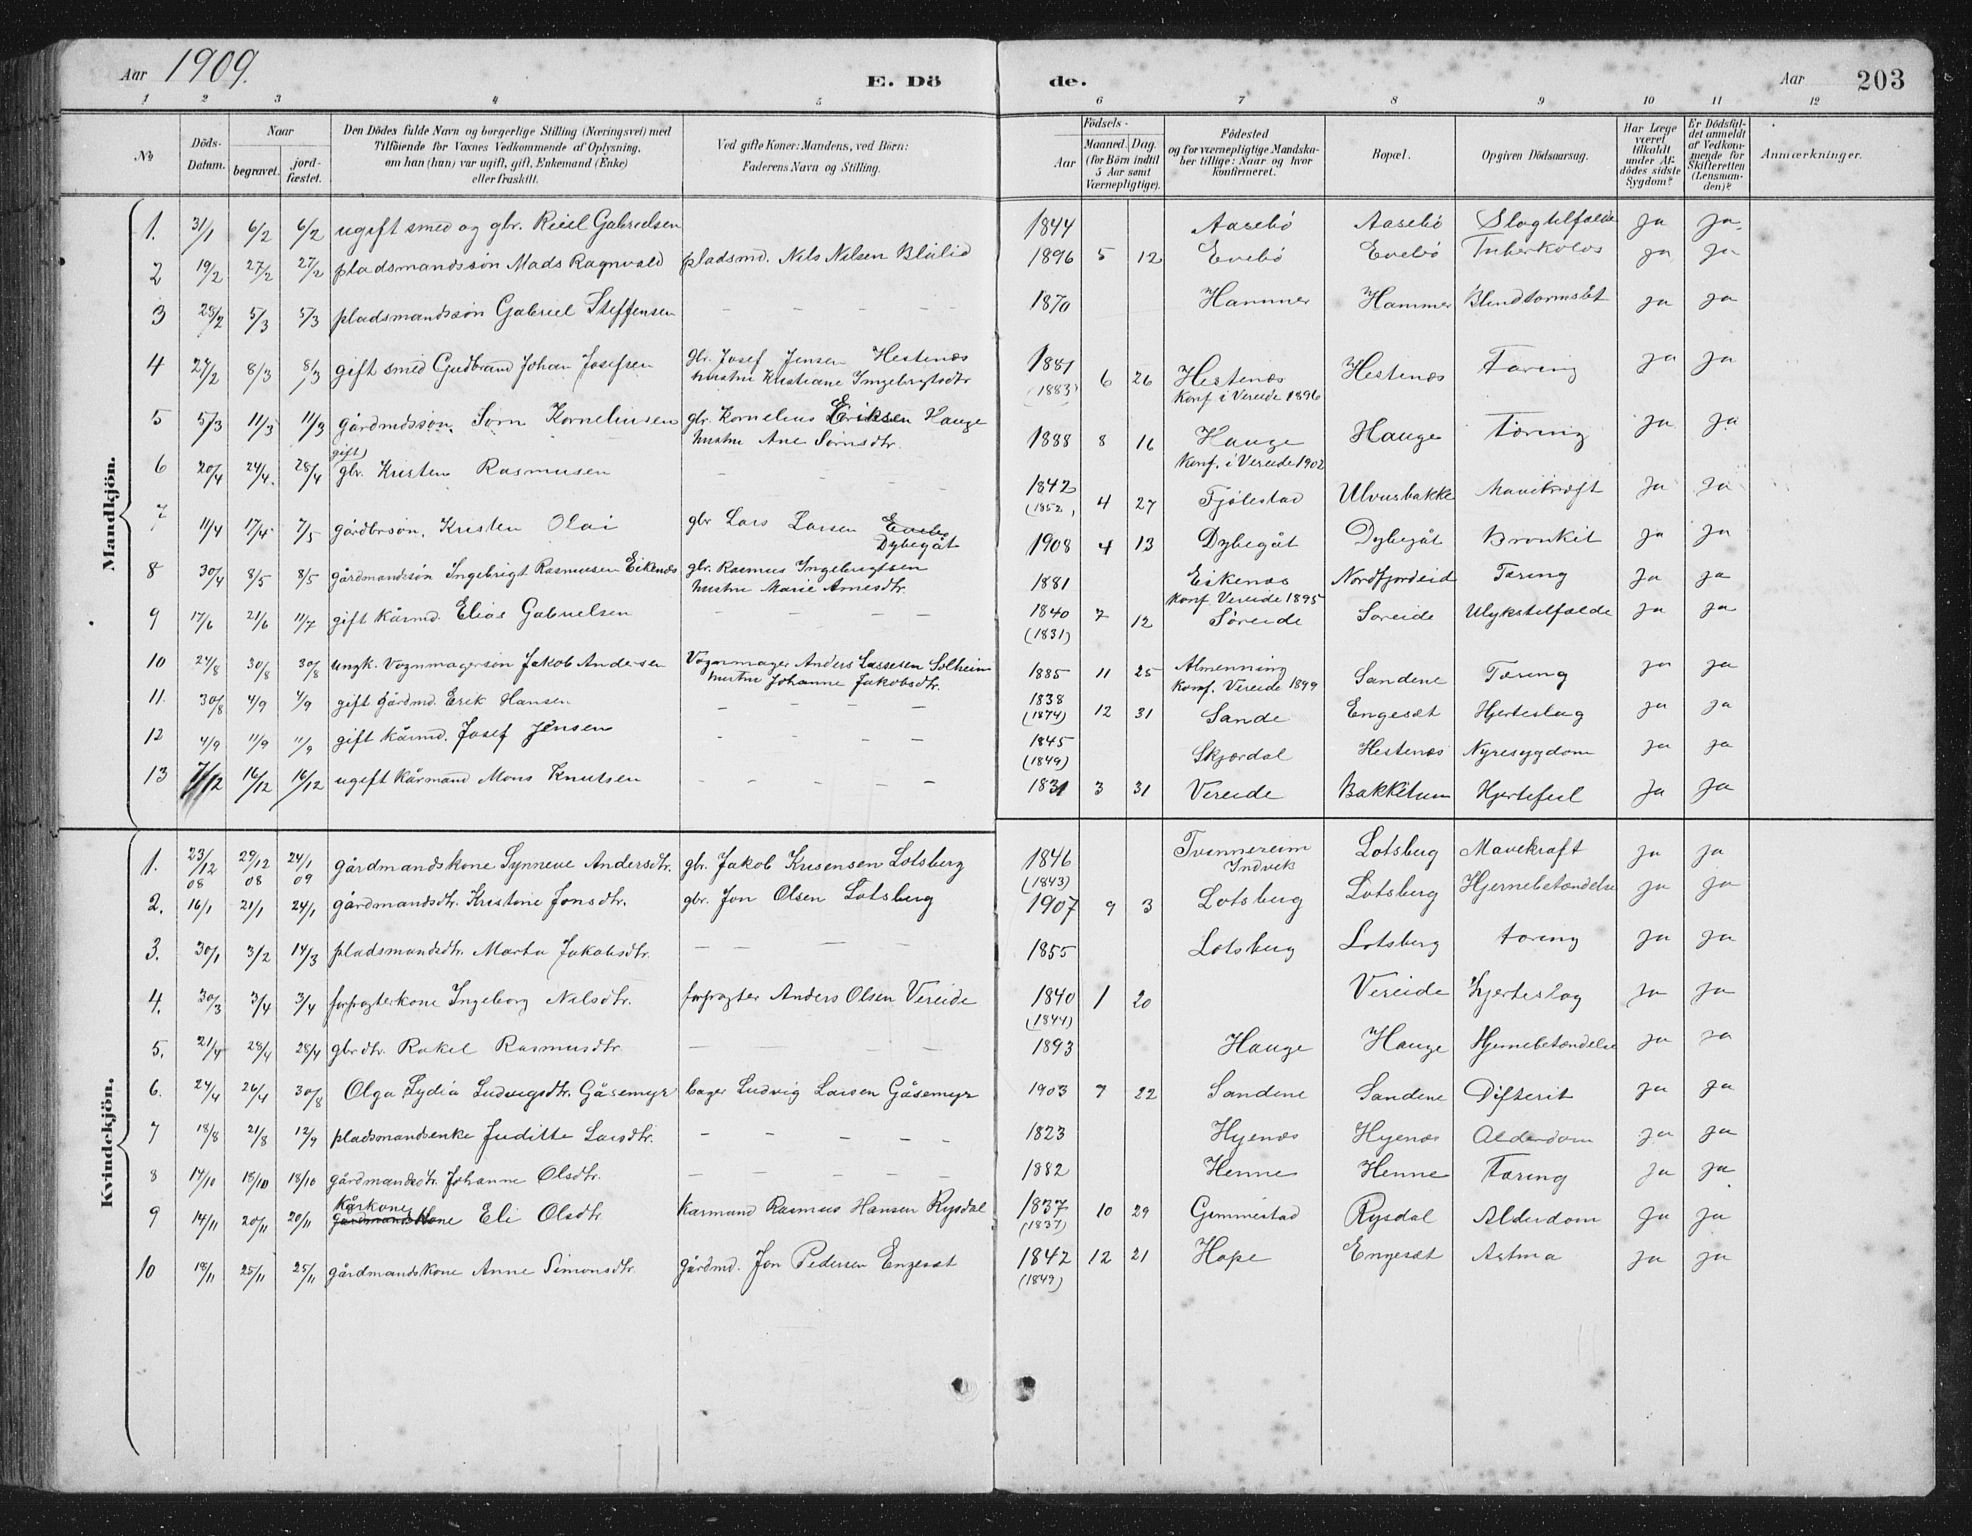 Aar 1909.
E. Dö
de.
Aar
203
1 2 3 4 5 6 7 8 9 10 11 12
No
Döds-
Datum.
Naar
begravet.
jord-
fæstet.
Den Dödes fulde Navn og borgerlige Stilling (Næringsvei) med
Tilföiende for Voxnes Vedkommende af Oplysning,
om han (hun) var ugift, gift, Enkemand (Enke)
eller fraskilt.
Ved gifte Koner: Mandens, ved Börn:
Faderens Navn og Stilling.
Födsels-
Aar
Maaned.
Dag.
(for Börn indtil
5 Aar samt
Værnepligtige).
Födested
og for værnepligtige Mandska-
ber tillige: Naar og hvor
konfirmeret.
Bopæl.
Opgiven Dödsaarsag.
Har Læge
været
tilkaldt
under Af-
dödes sidste
Sygdom?
Er Dödsfal-
det anmeldt
af Vedkom-
mende for
Skifteretten
(Lensman-
den)?
Anmærkninger.
Mandkjön.
1. 31/1 6/2 6/2 ugift smed og gbr. Reiel Gabrielsen 1844 Aasebö Aasebö Slagtilfælde ja ja
2 19/2 27/2 27/2 pladsmandssön Mads Ragnvald pladsmd. Nils Nilsen Blålid 1896 5 12 Evebö Evebö Tuberkolos ja ja
3 28/2 5/3 5/3 pladsmandssön Gabriel Steffensen – – – – 1870 Hammer Hammer Blindtarmsbet ja ja
4 27/2 8/3 8/3 gift smed Gudbrand Johan Josefsen gbr. Josef Jensen Hestenæs
hustru Kristiane Ingebrigtsdtr 1881 (1883) 6 26 Hestenæs
Konf i Vereide 1896 Hestenæs Tæring ja ja
5 5/3 11/3 11/3 gårdmdssön. Sörn Korneliusen gbr. Kornelius Eriksen Hauge
hustru Ane Sörnsdtr. 1888 8 16 Hauge
Konf. i Vereide 1902 Hauge Tæring ja ja
6 20/4 24/4. 28/4 (gift) gbr. Kristen Rasmusen – – – – 1842 (1852) 4 27 Fjölestad Ulvusbakke Mavekræft ja ja
7 11/4 17/4 7/5 gårdbrsön. Kristen Olai gbr Lars Larsen Evebö
Dybegåt 1908 4 13 Dybegåt Dybegåt Bronkit ja ja
8 30/4 8/5 8/5 gårdmandssön Ingebrigt Rasmusen Eikenæs gbr. Rasmus Ingebrigtsen
hustru Marie Arnesdtr. 1881 Eikenæs
Konf. Vereide 1895 Nordfjordeid Tæring ja ja
9 17/6 21/6 11/7 gift kårmd. Elias Gabrielsen – – – – 1840 (1831) 7 12 Söreide Soreide Ulykstilfælde ja ja
10 24/8 30/8 30/8 ungk. vognmagersön Jakob Andersen Vognmager Anders Lassesen Solheim
hustru Johanne Jakobsdtr. 1885 11 25 Almenning
Konf. Vereide 1899 Sandene Tæring ja ja
11. 30/8 4/9 4/9 gift gårdmd. Erik Hansen – – – – 1838 (1874) 12 31 Sande Engesæt Hjerteslag ja ja
12 4/9 11/9 11/9 gift kårmd. Josef Jensen – – – – 1845 (1849) Skjærdal Hestenæs Nyresygdom ja ja
13 7/12 16/12 16/12 ugift kårmand Mons Knutsen – – – – 1831 3 31 Vereide Bakketun Hjertefeil ja ja
Kvindekjön.
1. 23/12 08 29/12 08 24/1 09 gårdmandskone Synneve Andersdtr. gbr. Jakob Kristensen Lotsberg 1846 (1843) Tvinnereim
Indvik Lotsberg Mavekræft ja ja
2. 16/1 21/1 24/1 gårdmandsdtr. Kristine Jonsdtr. gbr. Jon Olsen Lotsberg 1907 9 3 Lotsberg Lotsberg Hjernebetændelse ja ja
3. 30/1 3/2 14/3 pladsmandsdtr. Marta Jakobsdtr. – – – 1855 Lotsberg Lotsberg tæring ja ja
4. 30/3 3/4 3/4 forpagterkone Ingeborg Nilsdtr. forpagter Anders Olsen Vereide 1840 (1844) 1 20 Vereide Hjerteslag ja ja
5. 21/4 28/4 28/4 gbrdtr. Rakel Rasmusdtr. – – – – 1893 Hauge Hauge Hjernebetændelse ja ja
6. 24/4 26/4 30/8 Olga Lydia Ludvigsdtr. Gåsemyr bager Ludvig Larsen Gåsemyr 1903 7 22 Sandene Sandene Difterit ja ja
7 18/8 21/8 12/9 pladsmandsenke Juditte Larsdtr. – – – – – 1823 Hyenæs Hyenæs Alderdom ja ja
8 14/10 18/10 18/10 gårdmandsdtr. Johanne Olsdtr. – – – – – 1882 Henne Henne Tæring ja ja
9 14/11 20/11 20/11 Kårkone gårdmandskone Eli Olsdtr Kårmand Rasmus Hansen Rysdal 1837 (1837) 10 29 Gimmestad Rysdal Alderdom ja ja
10 18/11 25/11 25/11 gårdmandskone Anne Simonsdtr. gårdmd. Jon Pedersen Engesæt 1842 (1849) 12 21 Hope Engesæt Astma ja ja